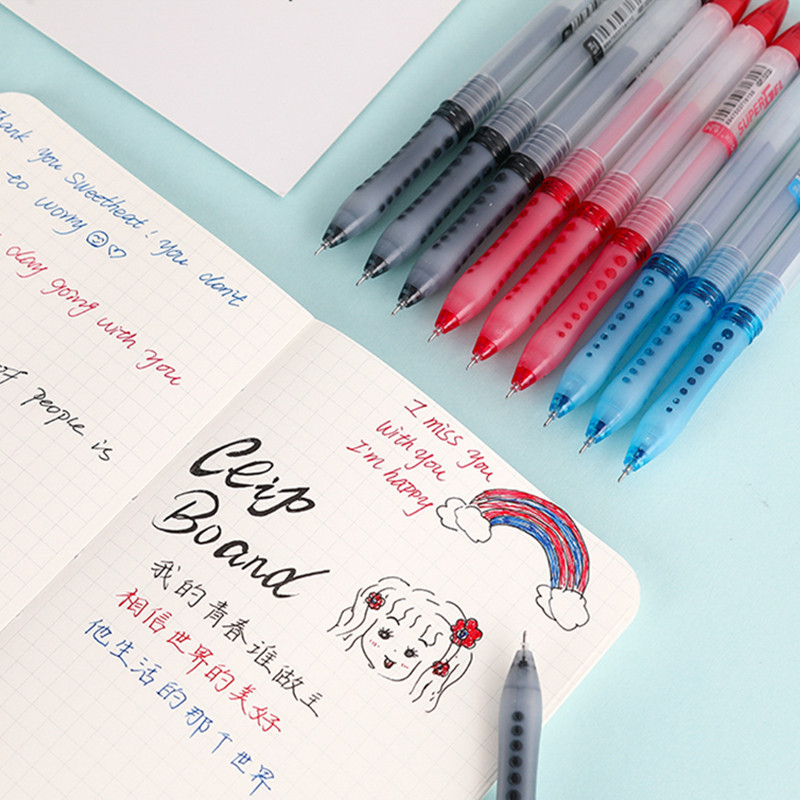 Thank you Sweetheat! You don't
to worry
day going with you
of people is
I miss you
With you
I'm happy
Clip
Board
我的青春谁做主
相信世界的美好
他生活的那个世界
SUPER